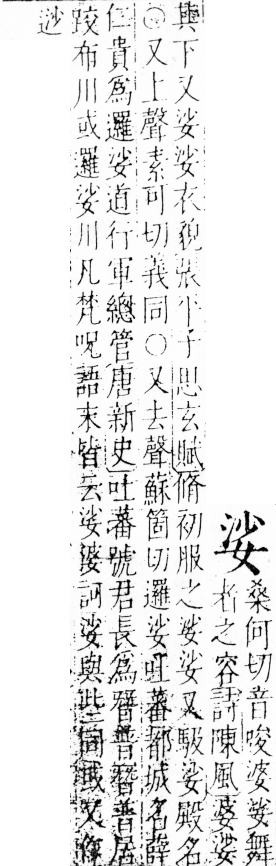 娑
桑何切音唆婆娑舞
者之容詩陳風婆娑
與下又娑娑衣貌張平子思玄賦脩初服之娑娑又馺娑殿名
○又上聲素可切義同○又去聲蘇箇切邏娑吐蕃都城名薛
仁貴爲邏娑道行軍總管唐新史吐蕃號君長爲贊普贊普居
跤布川或邏娑川凡梵呪語末皆云娑婆訶娑與些同或又作
逤